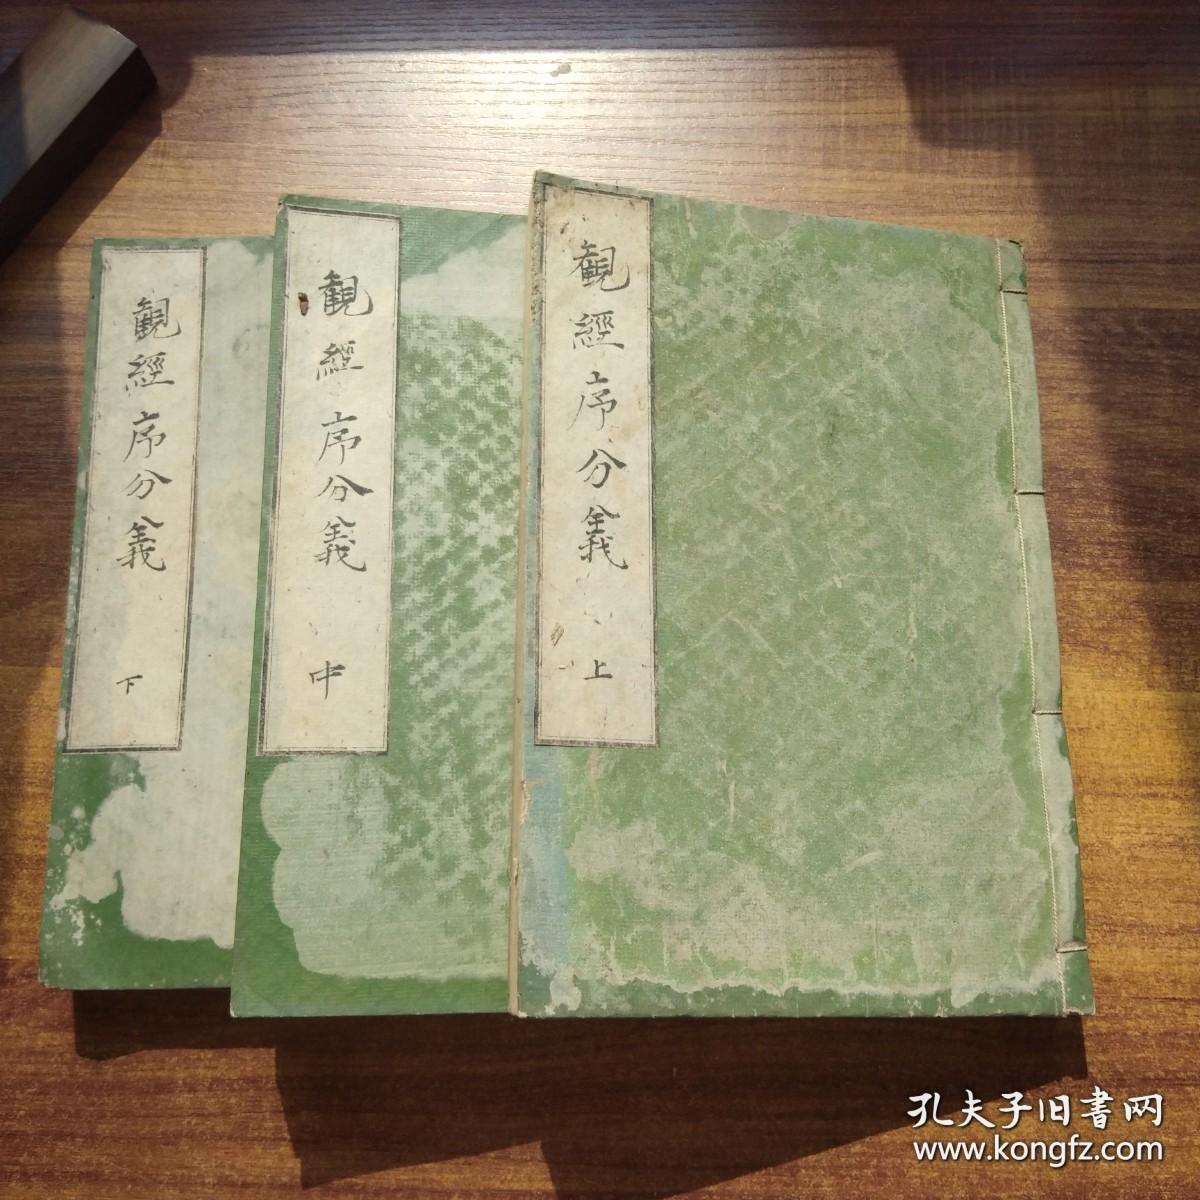 観經序分義 上
観經序分義 中
観經序分義 下
孔夫子旧書网
www.kongfz.com